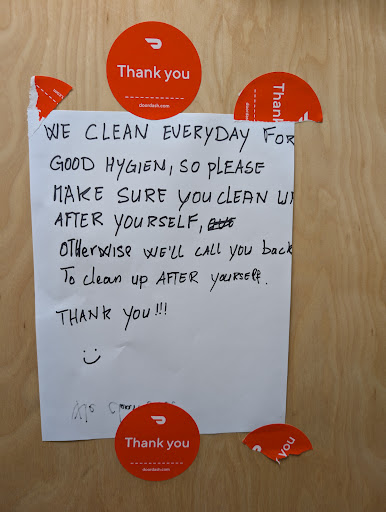 Thank you
doordash.com
Thank
WE CLEAN EVERYDAY FOR
GOOD HYGIEN, SO PLEASE
MAKE SURE YOU CLEAN UP
AFTER YOURSELF,
OTHERWISE WE'LL CALL YOU back
To clean up AFTER YOURSELF.
THANK YOU!!!
Thank you
doordash.com
you